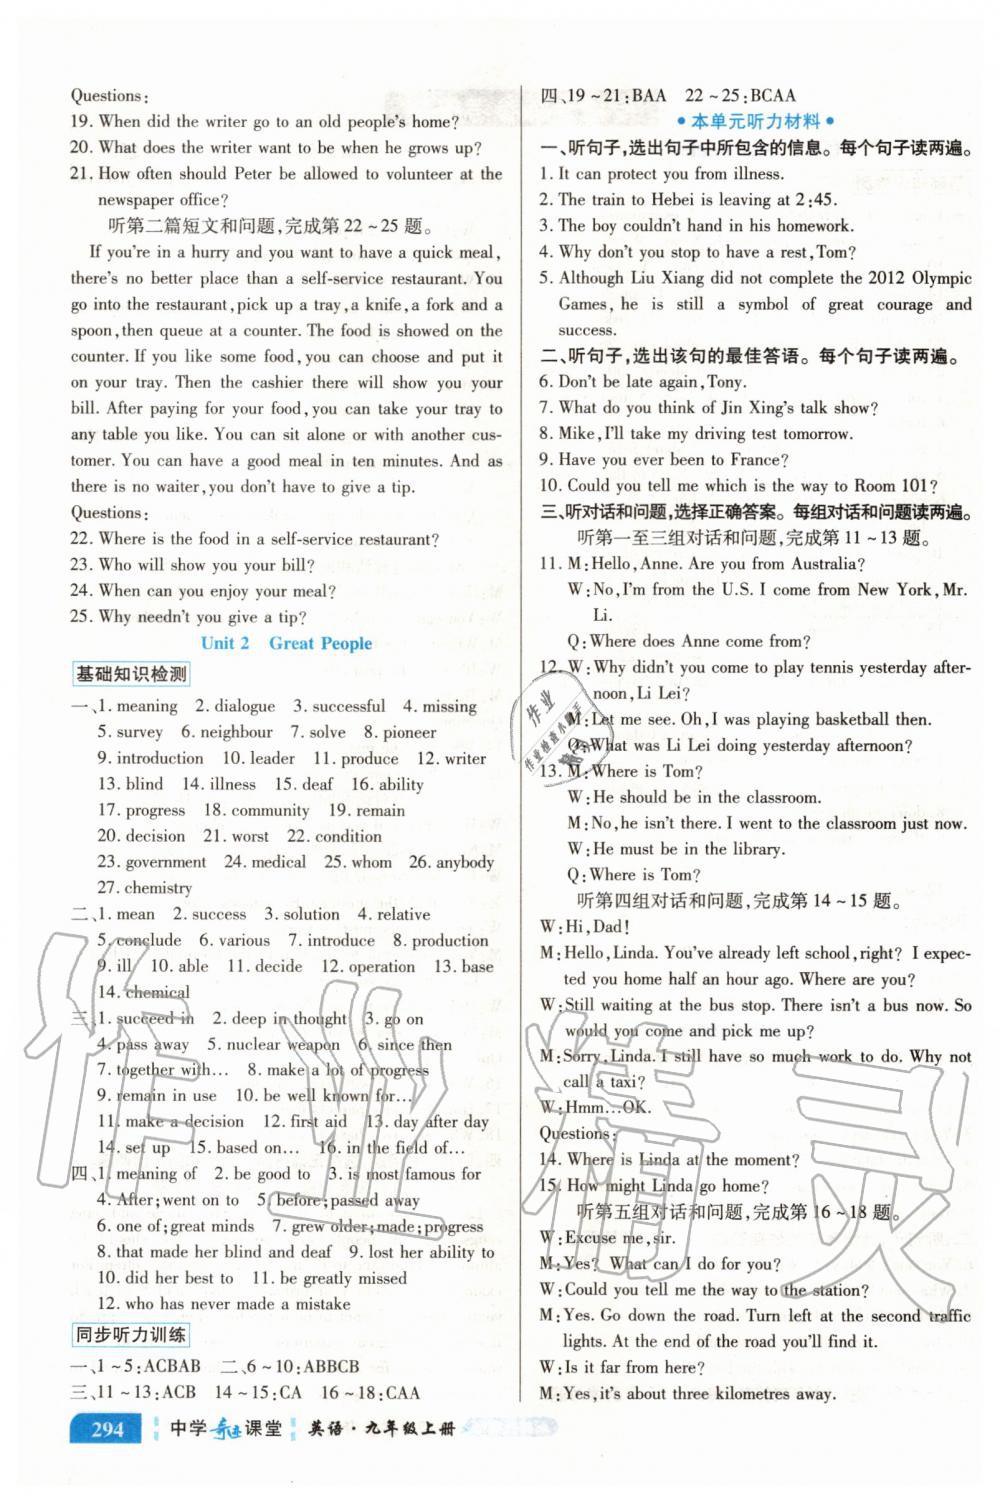 Questions:
19. When did the writer go to an old people's home?
20. What does the writer want to be when he grows up?
21. How often should Peter be allowed to volunteer at the
newspaper office?
听第二篇短文和问题,完成第 22～25 题。
If you're in a hurry and you want to have a quick meal,
there's no better place than a self-service restaurant. You
go into the restaurant,pick up a tray,a knife,a fork and a
spoon,then queue at a counter. The food is showed on the
counter. If you like some food,you can choose and put it
on your tray. Then the cashier there will show you your
bill. After paying for your food,you can take your tray to
any table you like. You can sit alone or with another cus-
tomer. You can have a good meal in ten minutes. And as
there is no waiter,you don't have to give a tip.
Questions:
22. Where is the food in a self-service restaurant?
23. Who will show you your bill?
24. When can you enjoy your meal?
25. Why needn't you give a tip?
Unit 2 Great People
基础知识检测
一、1. meaning 2. dialogue 3. successful 4. missing
5. survey 6. neighbour 7. solve 8. pioneer
9. introduction 10. leader 11. produce 12. writer
13. blind 14. illness 15. deaf 16. ability
17. progress 18. community 19. remain
20. decision 21. worst 22. condition
23. government 24. medical 25. whom 26. anybody
27. chemistry
二、1. mean 2. success 3. solution 4. relative
5. conclude 6. various 7. introduce 8. production
9. ill 10. able 11. decide 12. operation 13. base
14. chemical
三、1. succeed in 2. deep in thought 3. go on
4. pass away 5. nuclear weapon 6. since then
7. together with… 8. make a lot of progress
9. remain in use 10. be well known for…
11. make a decision 12. first aid 13. day after day
14. set up 15. based on… 16. in the field of…
四、1. meaning of 2. be good to 3. is most famous for
4. After;went on to 5. before;passed away
6. one of;great minds 7. grew older;made;progress
8. that made her blind and deaf 9. lost her ability to
10. did her best to 11. be greatly missed
12. who has never made a mistake
同步听力训练
一、1～5:ACBAB 二、6～10:ABBCB
三、11～13:ACB 14～15:CA 16～18:CAA
294 中学奇迹课堂 英语·九年级上册
四、19～21:BAA 22～25:BCAA
•本单元听力材料•
一、听句子,选出句子中所包含的信息。每个句子读两遍。
1. It can protect you from illness.
2. The train to Hebei is leaving at 2:45.
3. The boy couldn't hand in his homework.
4. Why don't you stop to have a rest,Tom?
5. Although Liu Xiang did not complete the 2012 Olympic
Games, he is still a symbol of great courage and
success.
二、听句子,选出该句的最佳答语。每个句子读两遍。
6. Don't be late again,Tony.
7. What do you think of Jin Xing's talk show?
8. Mike,I'll take my driving test tomorrow.
9. Have you ever been to France?
10. Could you tell me which is the way to Room 101?
三、听对话和问题,选择正确答案。每组对话和问题读两遍。
听第一至三组对话和问题,完成第 11～13 题。
11. M:Hello,Anne. Are you from Australia?
W:No,I'm from the U.S. I come from New York,Mr.
Li.
Q:Where does Anne come from?
12. W:Why didn't you come to play tennis yesterday after-
noon,Li Lei?
M:Let me see. Oh,I was playing basketball then.
Q:What was Li Lei doing yesterday afternoon?
13. M:Where is Tom?
W:He should be in the classroom.
M:No,he isn't there. I went to the classroom just now.
W:He must be in the library.
Q:Where is Tom?
听第四组对话和问题,完成第 14～15 题。
W:Hi,Dad!
M:Hello,Linda. You've already left school,right? I expec-
ted you home half an hour ago. Where are you?
W:Still waiting at the bus stop. There isn't a bus now. So
would you come and pick me up?
M:Sorry,Linda. I still have so much work to do. Why not
call a taxi?
W:Hmm…OK.
Questions:
14. Where is Linda at the moment?
15. How might Linda go home?
听第五组对话和问题,完成第 16～18 题。
W:Excuse me,sir.
M:Yes? What can I do for you?
W:Could you tell me the way to the station?
M:Yes. Go down the road. Turn left at the second traffic
lights. At the end of the road you'll find it.
W:Is it far from here?
M:Yes,it's about three kilometres away.
作业精灵
作业
作业检查小助手